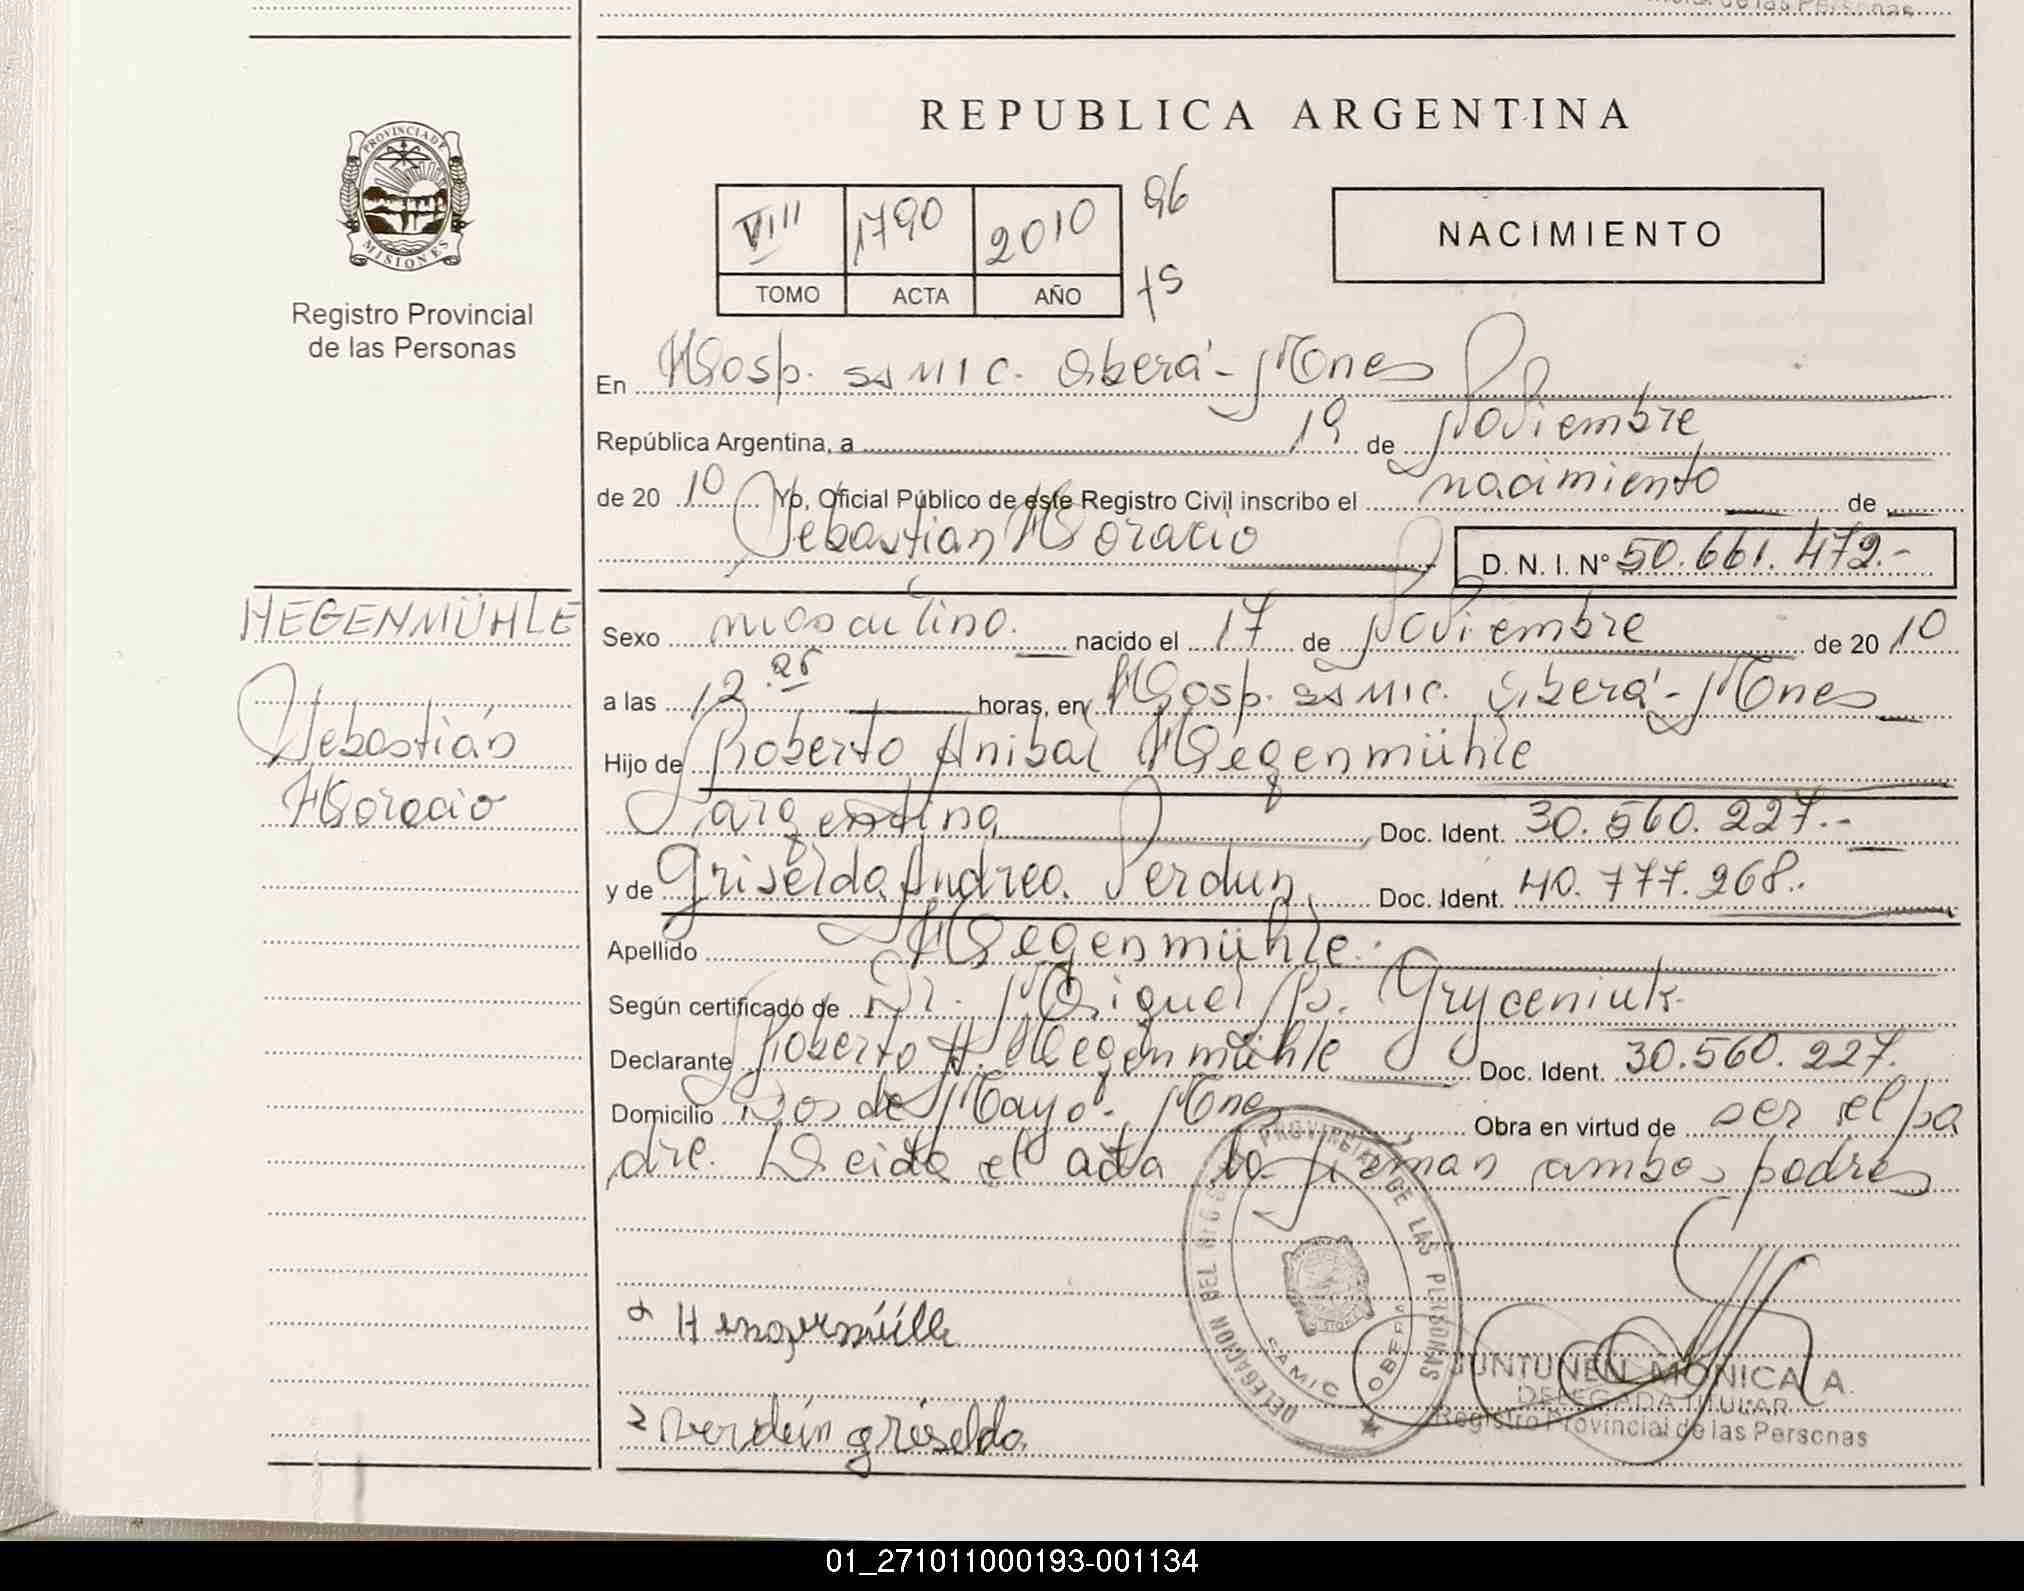 de las Personas
REPUBLICA ARGENTINA
PROVINCIA DE
MISIONES
Registro Provincial
de las Personas
VIII 1790 2010 96
TOMO ACTA AÑO 75
NACIMIENTO
En Hosp. SAMIC. Oberá - Mnes
República Argentina, a 19 de Noviembre
de 20 10 Yo, Oficial Público de este Registro Civil inscribo el nacimiento de
Sebastian Horacio D. N. I. Nº 50.661.472.-
HEGENMÜHLE
Sebastián
Horacio
Sexo masculino. nacido el 17 de Noviembre de 20 10
a las 12. horas, en Hosp. SAMIC. Oberá - Mnes
Hijo de Roberto Anibal Hegenmühle
argentina Doc. Ident. 30.560.227.-
y de Griselda Andrea Perdun Doc. Ident. 40.777.268..
Apellido Hegenmühle.
Según certificado de Dr. Miguel Gryceniuk
Declarante Roberto A. Hegenmühle Doc. Ident. 30.560.227.
Domicilio Dos de Mayo. Mnes Obra en virtud de ser el pa
dre. Leida el acta la firman ambos padres
DELEGACION DEL REG. PROVINCIAL DE LAS PERSONAS
SAMIC OBERA
JUNTUNEN MONICA A.
DELEGADA TITULAR
Registro Provincial de las Personas
griselda
01_271011000193-001134